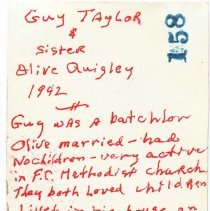 Guy Taylor
&
Sister
Olive Quigley
1942
158
Guy was a batchlor
Olive married - had
No children - very active
in F.C. Methodist church
They both Loved children
in his house on